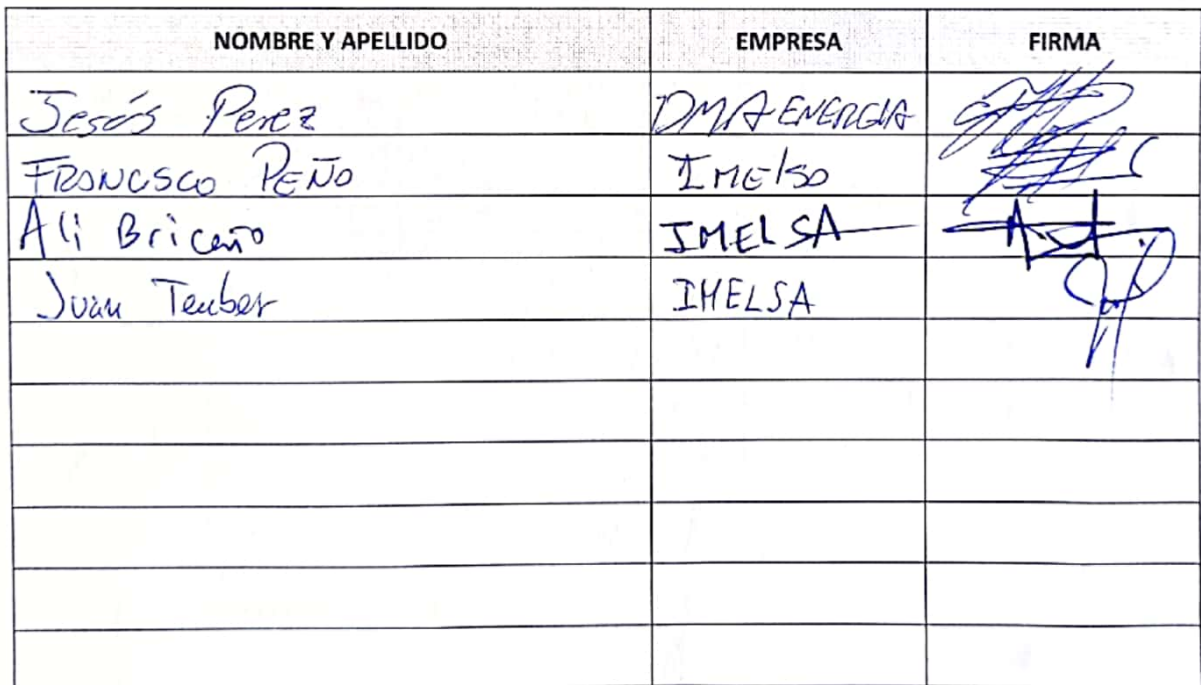 NOMBRE Y APELLIDO EMPRESA FIRMA
Jesús Perez DMA ENERGIA
FRANCISCO PEÑO IMELSO
Ali Briceño IMELSA
Juan Teuber IMELSA